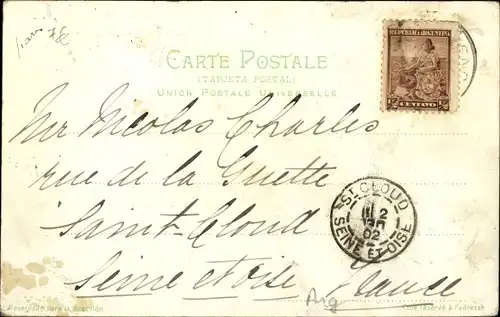 CARTE POSTALE
(TARJETA POSTAL)
UNION POSTALE UNIVERSELLE
REPUBLICA ARGENTINA
CENTAVO
Mr Nicolas Charles
rue de la Guette
Saint-Cloud
Seine et Oise France
ST CLOUD
02
SEINE ET OISE
Arg
Reservado para la direccion
Côté réservé à l'adresse